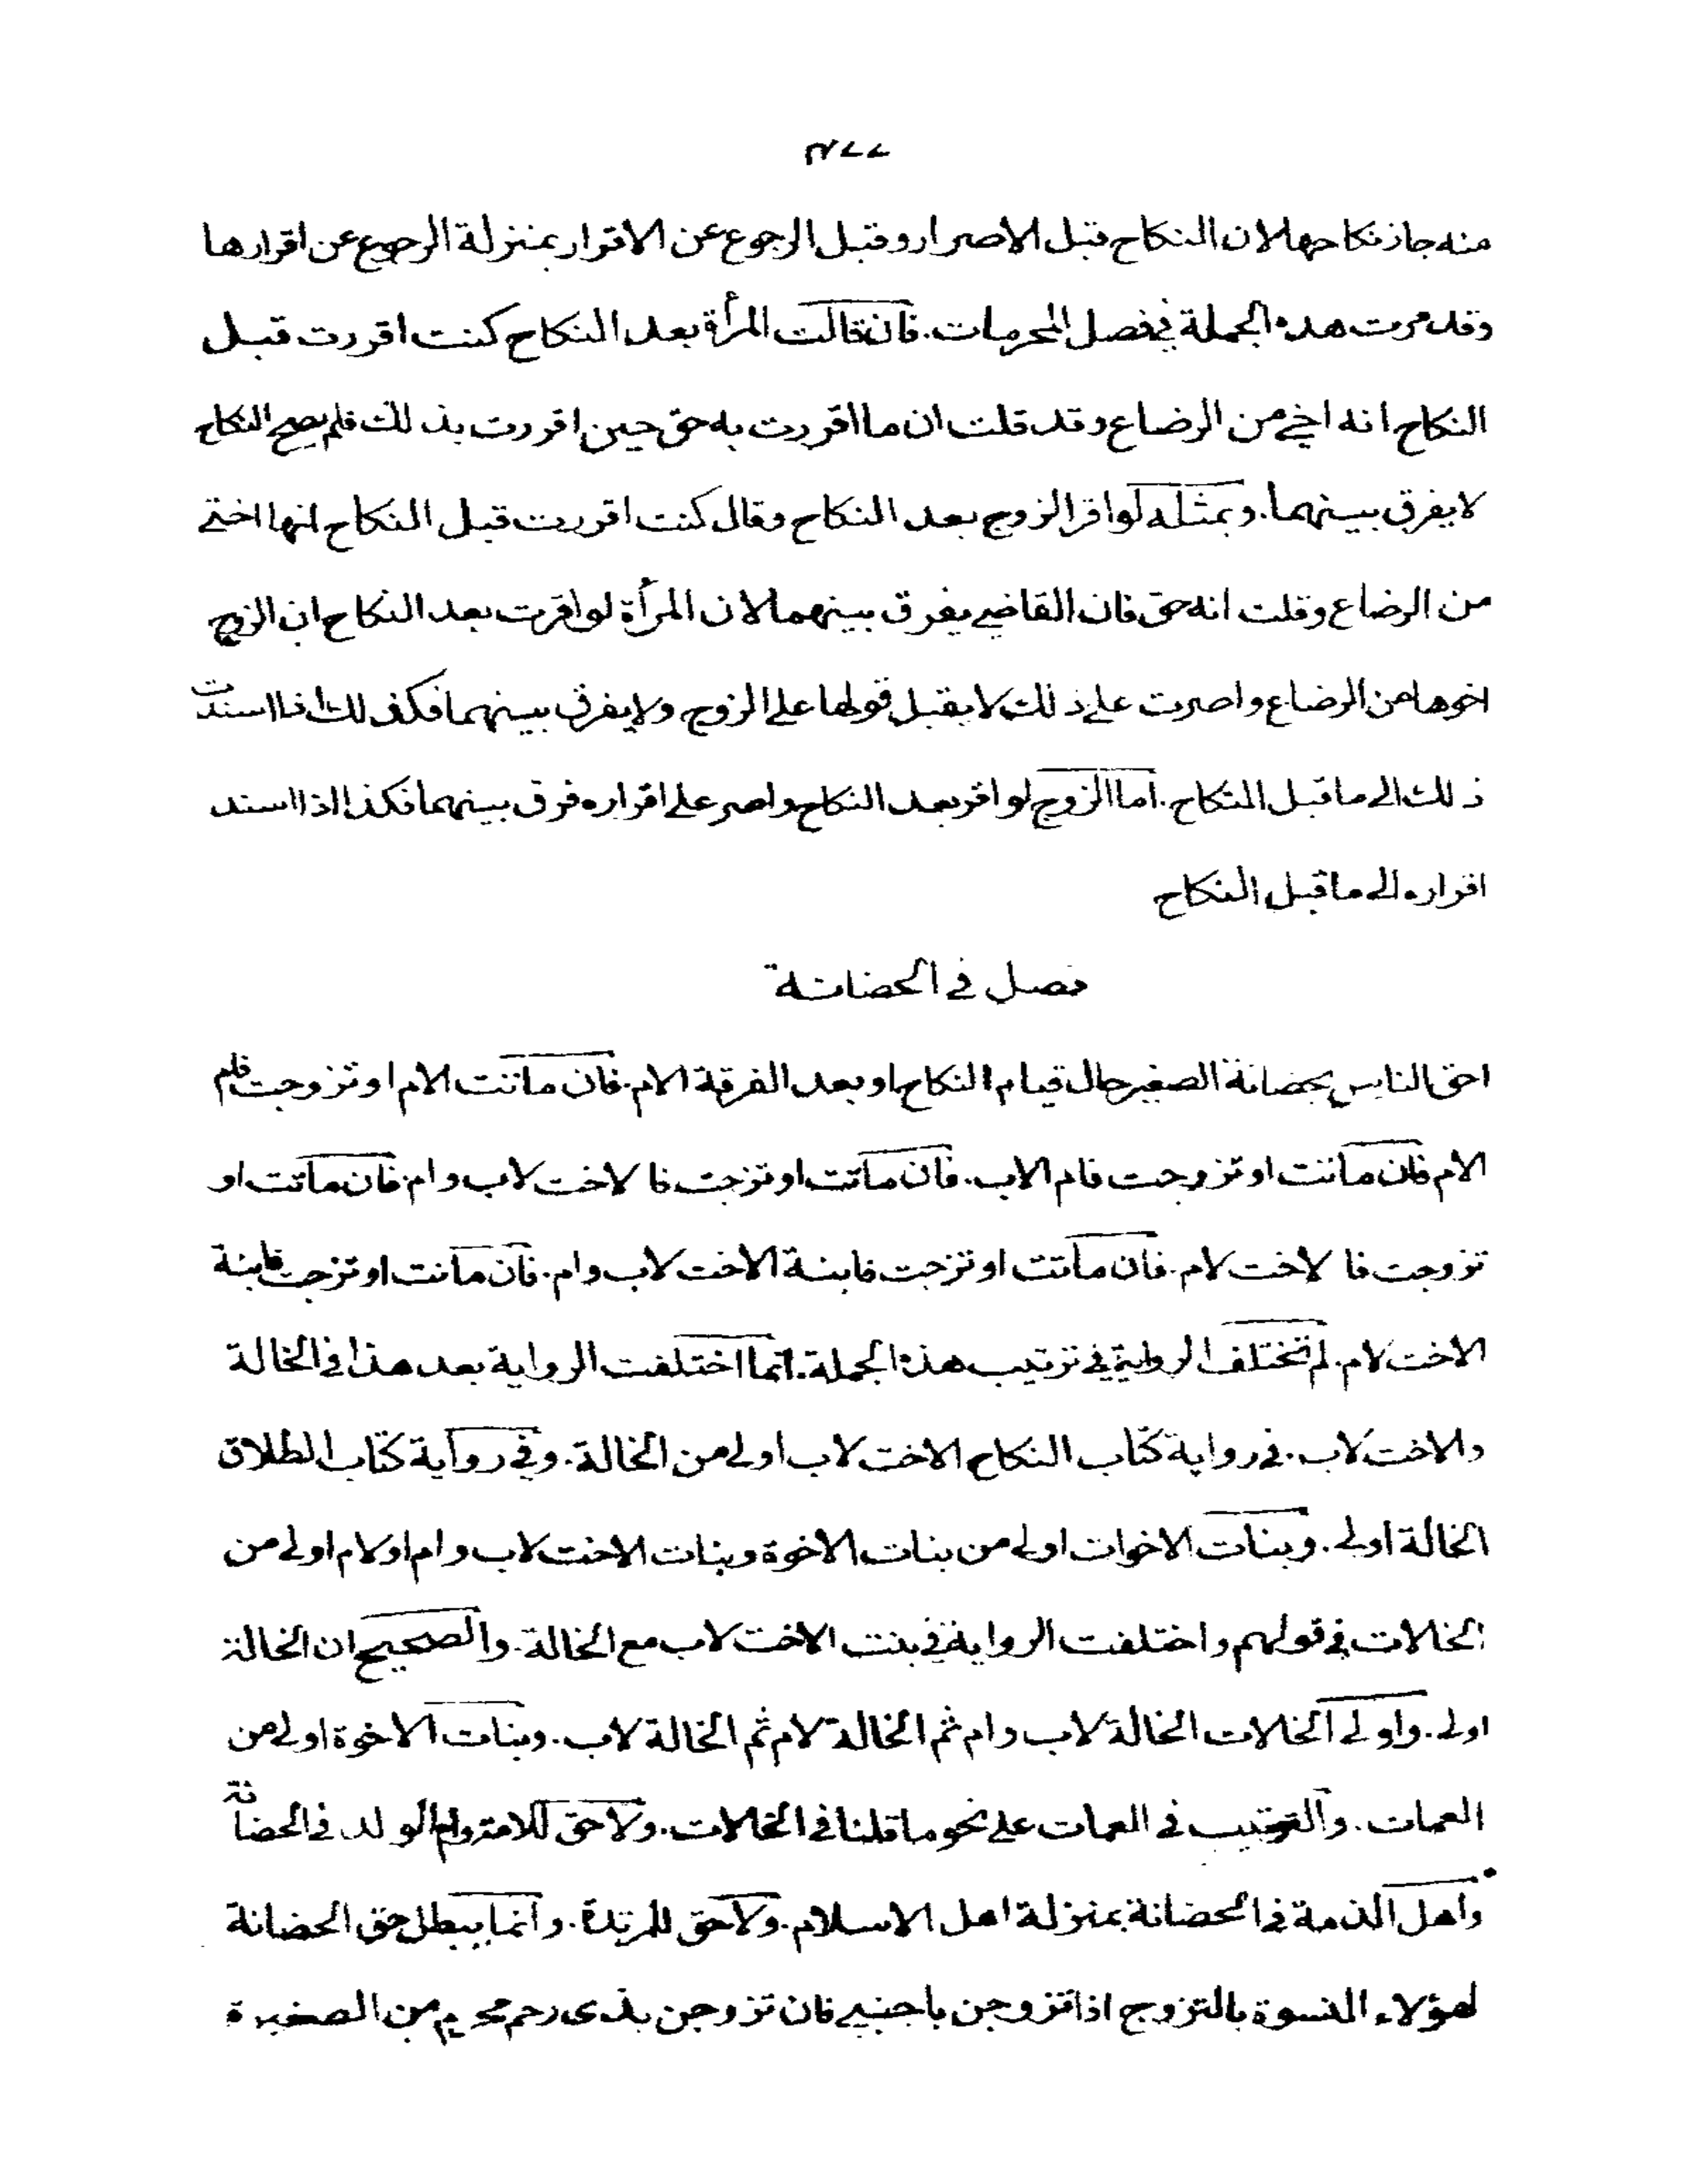 ٤٧٧
منه جاز نكاحها لان النكاح قبل الاصرار وقبل الرجوع عن الاقرار بمنزلة الرجوع عن اقرارها
وقد مرت هذه الجملة في فصل المحرمات. فان قالت المرأة بعد النكاح كنت اقررت قبل
النكاح انه اخي من الرضاع وقد قلت ان ما اقررت به حق حين اقررت بذلك فلم يصح النكاح
لا يفرق بينهما. وبمثله لو اقر الزوج بعد النكاح وقال كنت اقررت قبل النكاح انها اختي
من الرضاع وقلت انه حق فان القاضي يفرق بينهما لان المرأة لو اقرت بعد النكاح ان الزوج
اخوها من الرضاع واصرت على ذلك لا يقبل قولها على الزوج ولا يفرق بينهما فكذلك اذا اسندت
ذلك الى ما قبل النكاح. اما الزوج لو اقر بعد النكاح واصر على اقراره فرق بينهما فكذا اذا اسند
اقراره الى ما قبل النكاح
فصل في الحضانة
احق الناس بحضانة الصغير حال قيام النكاح او بعد الفرقة الام. فان ماتت الام او تزوجت فام
الام فان ماتت او تزوجت فام الاب. فان ماتت او تزجت فالاخت لاب وام. فان ماتت او
تزوجت فالاخت لام. فان ماتت او تزجت فابنة الاخت لاب وام. فان ماتت او تزجت فابنة
الاخت لام. لم تختلف الرواية في ترتيب هذه الجملة. انما اختلفت الرواية بعد هذا في الخالة
والاخت لاب. في رواية كتاب النكاح الاخت لاب اولى من الخالة. وفي رواية كتاب الطلاق
الخالة اولى. وبنات الاخوات اولى من بنات الاخوة وبنات الاخت لاب وام او لام اولى من
الخالات في قولهم واختلفت الرواية في بنت الاخت لاب مع الخالة. والصحيح ان الخالة
اولى. واولى الخالات الخالة لاب وام ثم الخالة لام ثم الخالة لاب. وبنات الاخوة اولى من
العمات. والترتيب في العمات على نحو ما قلنا في الخالات. ولا حق للامة وام الولد في الحضانة
واهل الذمة في الحضانة بمنزلة اهل الاسلام. ولا حق للمرتدة. وانما يبطل حق الحضانة
لهؤلاء النسوة بالتزوج اذا تزوجن باجنبي فان تزوجن بذي رحم محرم من الصغيرة